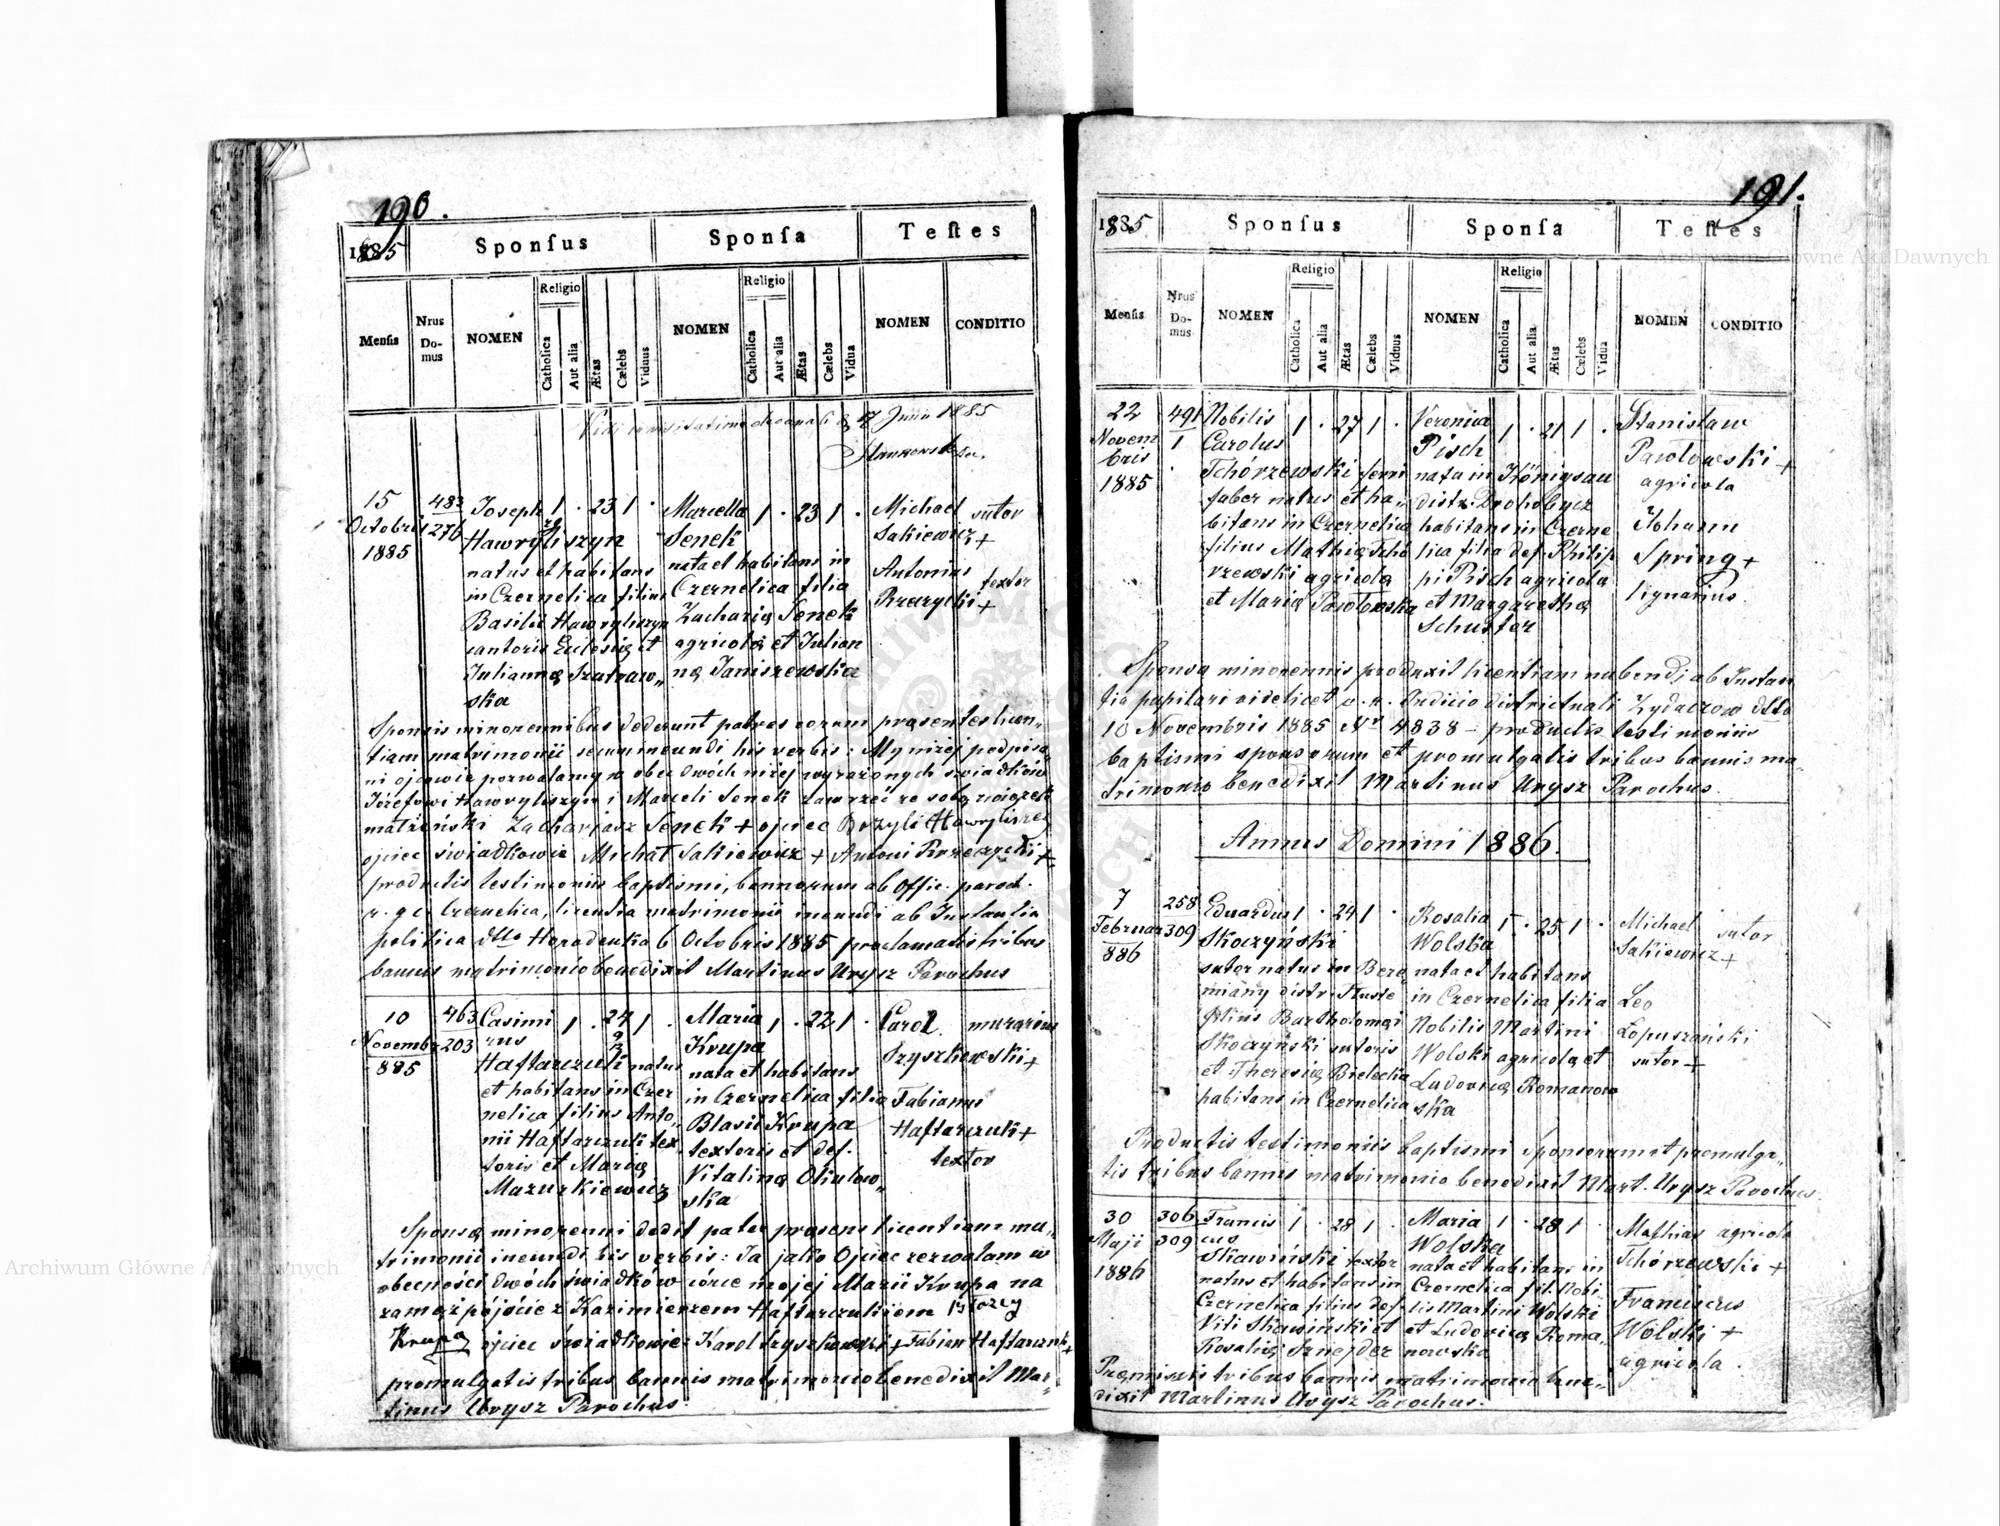 190.
1885
Sponſus
Sponſa
Teſtes
Menſis
Nrus Do-mus
NOMEN
Religio
Catholica
Aut alia
Ætas
Cælebs
Viduus
NOMEN
Religio
Catholica
Aut alia
Ætas
Cælebs
Vidua
NOMEN
CONDITIO
17 Junii 1885
15 Octobris 1885
483 1276
Joseph 1 . 23 1 .
Hawryliszyn
natus et habitans
in Czernelica filius
Basilii Hawryliszyn
cantoris Ecclesię et
Juliannę Szatraw„
ska
Marcella 1 . 23 1 .
Senek
nata et habitans in
Czernelica filia
Zacharię Senek
agricolę et Julian
nę Janiszewska
Michael sutor
Sakiewicz +
Antonius textor
Rzeczycki +
Sponsis minorennibus dederunt patres eorum pręsentes licen„
tiam matrimonii secum ineundi his verbis: My niżej podpisa
ni ojcowie pozwalamy w obec dwóch niżej wyrażonych świadków
Józefowi Hawryliszyn i Marceli Senek zawrzeć ze sobą związek
małżeński Zacharjasz Senek + ojciec Bazyli Hawryliszyn
ojciec świadkowie Michał Sakiewicz + Antoni Rzeczycki +
productis testimoniis baptismi, bannorum ab Offic. paroch.
r. g. c. Czernelica, licentia matrimonii ineundi ab Instantia
politica ddto Horodenka 6 Octobris 1885 proclamatis tribus
bannis matrimonio benedixit Martinus Urysz Parochus
10 Novembr 885
463 203
Casimi 1 . 24 1 .
rus
Haftarczuk natus
et habitans in Czer
nelica filius Anto„
nii Haftarczuk tex„
toris et Marię
Mazurkiewicz
Maria 1 . 22 1 .
Krupa
nata et habitans
in Czernelica filia
Blasii Krupa
textoris et def.
Vitalinę Okulow„
ska
Carol. murarius
Pryszkowski +
Fabianus
Haftarczuk +
textor
Sponsę minorenni dedit pater pręsens licentiam ma„
trimonii ineundi his verbis: Ja jako Ojciec zezwalam w
obecności dwóch świadków córce mojej Marii Krupa na
zamąż pójście z Kazimierzem Haftarczukiem Błażej
Krupa ojciec świadkowie: Karol Pryszkowski + Fabian Haftarczuk +
promulgatis tribus bannis matrimonio benedixit Mar„
tinus Urysz Parochus.
191.
1885
Sponſus
Sponſa
Teſtes
Menſis
Nrus Do-mus
NOMEN
Religio
Catholica
Aut alia
Ætas
Cælebs
Viduus
NOMEN
Religio
Catholica
Aut alia
Ætas
Cælebs
Vidua
NOMEN
CONDITIO
22 Novembris 1885
491 1
Nobilis 1 . 27 1 .
Carolus
Tchórzewski ferri
faber natus et ha„
bitans in Czernelica
filius Mathię Tchó
rzewski agricola
et Marię Pawłowska
Veronica 1 . 21 1 .
Pisch
nata in Königsau
distr. Drohobycz
habitans in Czerne
lica filia def. Philip
pi Pisch agricola
et Margarethę
Schuster
Stanisław
Pawłowski +
agricola
Johann
Spring +
lignarius.
Sponsa minorennis produxit licentiam nubendi ab Instan
tia pupilari videlicet c. r. Judicio districtuali Żydaczow ddto
10 Novembris 1885 Nr 4838 – productis testimoniis
baptismi sponsorum et promulgatis tribus bannis ma„
trimonio benedixit Martinus Urysz Parochus.
Annus Domini 1886.
7 Februar 886
258 309
Eduardus 1 . 24 1 .
Skoczyński
sutor natus in Bere
miany distr. Tłuste
filius Bartholomęi
Skoczyński sutoris
et Theresię Bielecka
habitans in Czernelica
Rosalia 1 . 25 1 .
Wolska
nata et habitans
in Czernelica filia
Nobilis Martini
Wolski agricolę et
Ludovicę Romanow
ska
Michael sutor
Sakiewicz +
Leo
Łopuszański
sutor +
Productis testimoniis baptismi sponsorum et promulga„
tis tribus bannis matrimonio benedixit Mart. Urysz Parochus.
30 Maji 1886
306 309
Francis 1 . 28 1 .
cus
Skawiński textor
natus et habitans in
Czernelica filius def.
Viti Skawiński et
Rosalię Sznejder
Maria 1 . 28 1 .
Wolska
nata et habitans in
Czernelica fil. Nobi„
lis Martini Wolski
et Ludovicę Roma„
nowska
Mathias agricola
Tchórzewski +
Franciscus
Wolski +
agricola.
Premissis tribus bannis matrimonio bene„
dixit Martinus Urysz Parochus.
Archiwum Główne Akt Dawnych
Archiwum Główne Akt Dawnych